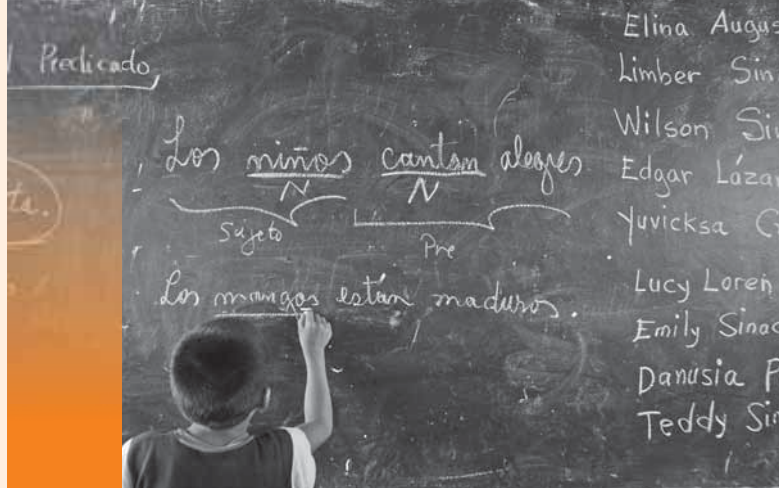 Predicado
Los niños cantan alegres
N N
Sujeto Pre
Los mangos están maduros.
Elina Augus
Limber Sin
Wilson Si
Edgar Lázar
Yuvicksa
Lucy Loren
Emily Sinac
Danusia P
Teddy Sin